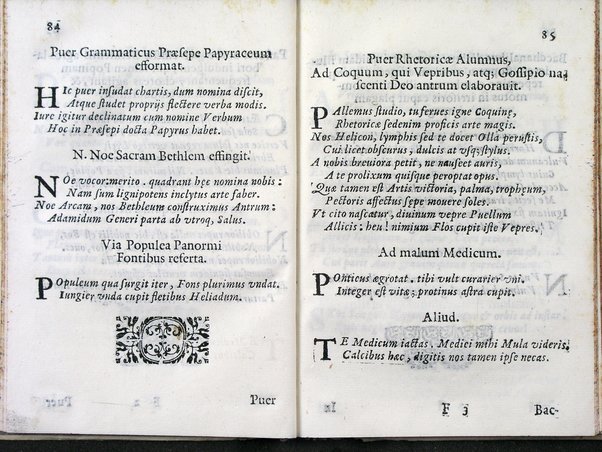 84
Puer Grammaticus Præsepe Papyraceum
efformat.
HIc puer insudat chartis, dum nomina discit,
Atque studet proprijs flectere verba modis.
Iure igitur declinatum cum nomine Verbum
Hoc in Præsepi docta Papyrus habet.
N. Noe Sacram Bethlem effingit.
NOe vocor: merito. quadrant hęc nomina nobis:
Nam sum lignipotens inclytus arte faber.
Noe Arcam, nos Bethleum construximus Antrum:
Adamidum Generi parta ab vtroq, Salus.
Via Populea Panormi
Fontibus referta.
POpuleum qua surgit iter, Fons plurimus vndat.
Iungier vnda cupit fletibus Heliadum.
Puer
85
Puer Rhetoricæ Alumnus,
Ad Coquum, qui Vepribus, atq; Gossipio na-
scenti Deo antrum elaborauit.
PAllemus studio, tu ferues igne Coquine,
Rhetoricæ sedenim proficis arte magis.
Nos Helicon, lymphis sed te docet Olla perustis,
Cui licet obscurus, dulcis at vsq; stylus.
A nobis breuiora petit, ne nauseet auris,
A te prolixum quisque peroptat opus.
Quæ tamen est Artis victoria, palma, trophęum,
Pectoris affectus sepe mouere soles.
Vt cito nascatur, diuinum vepre Puellum
Allicis: heu! nimium Flos cupit iste Vepres.
Ad malum Medicum.
POnticus ægrotat. tibi vult curarier vni.
Integer est vitæ; protinus astra cupit.
Aliud.
TE Medicum iactas. Medici mihi Mula videris.
Calcibus hæc, digitis nos tamen ipse necas.
F 3
Bac-